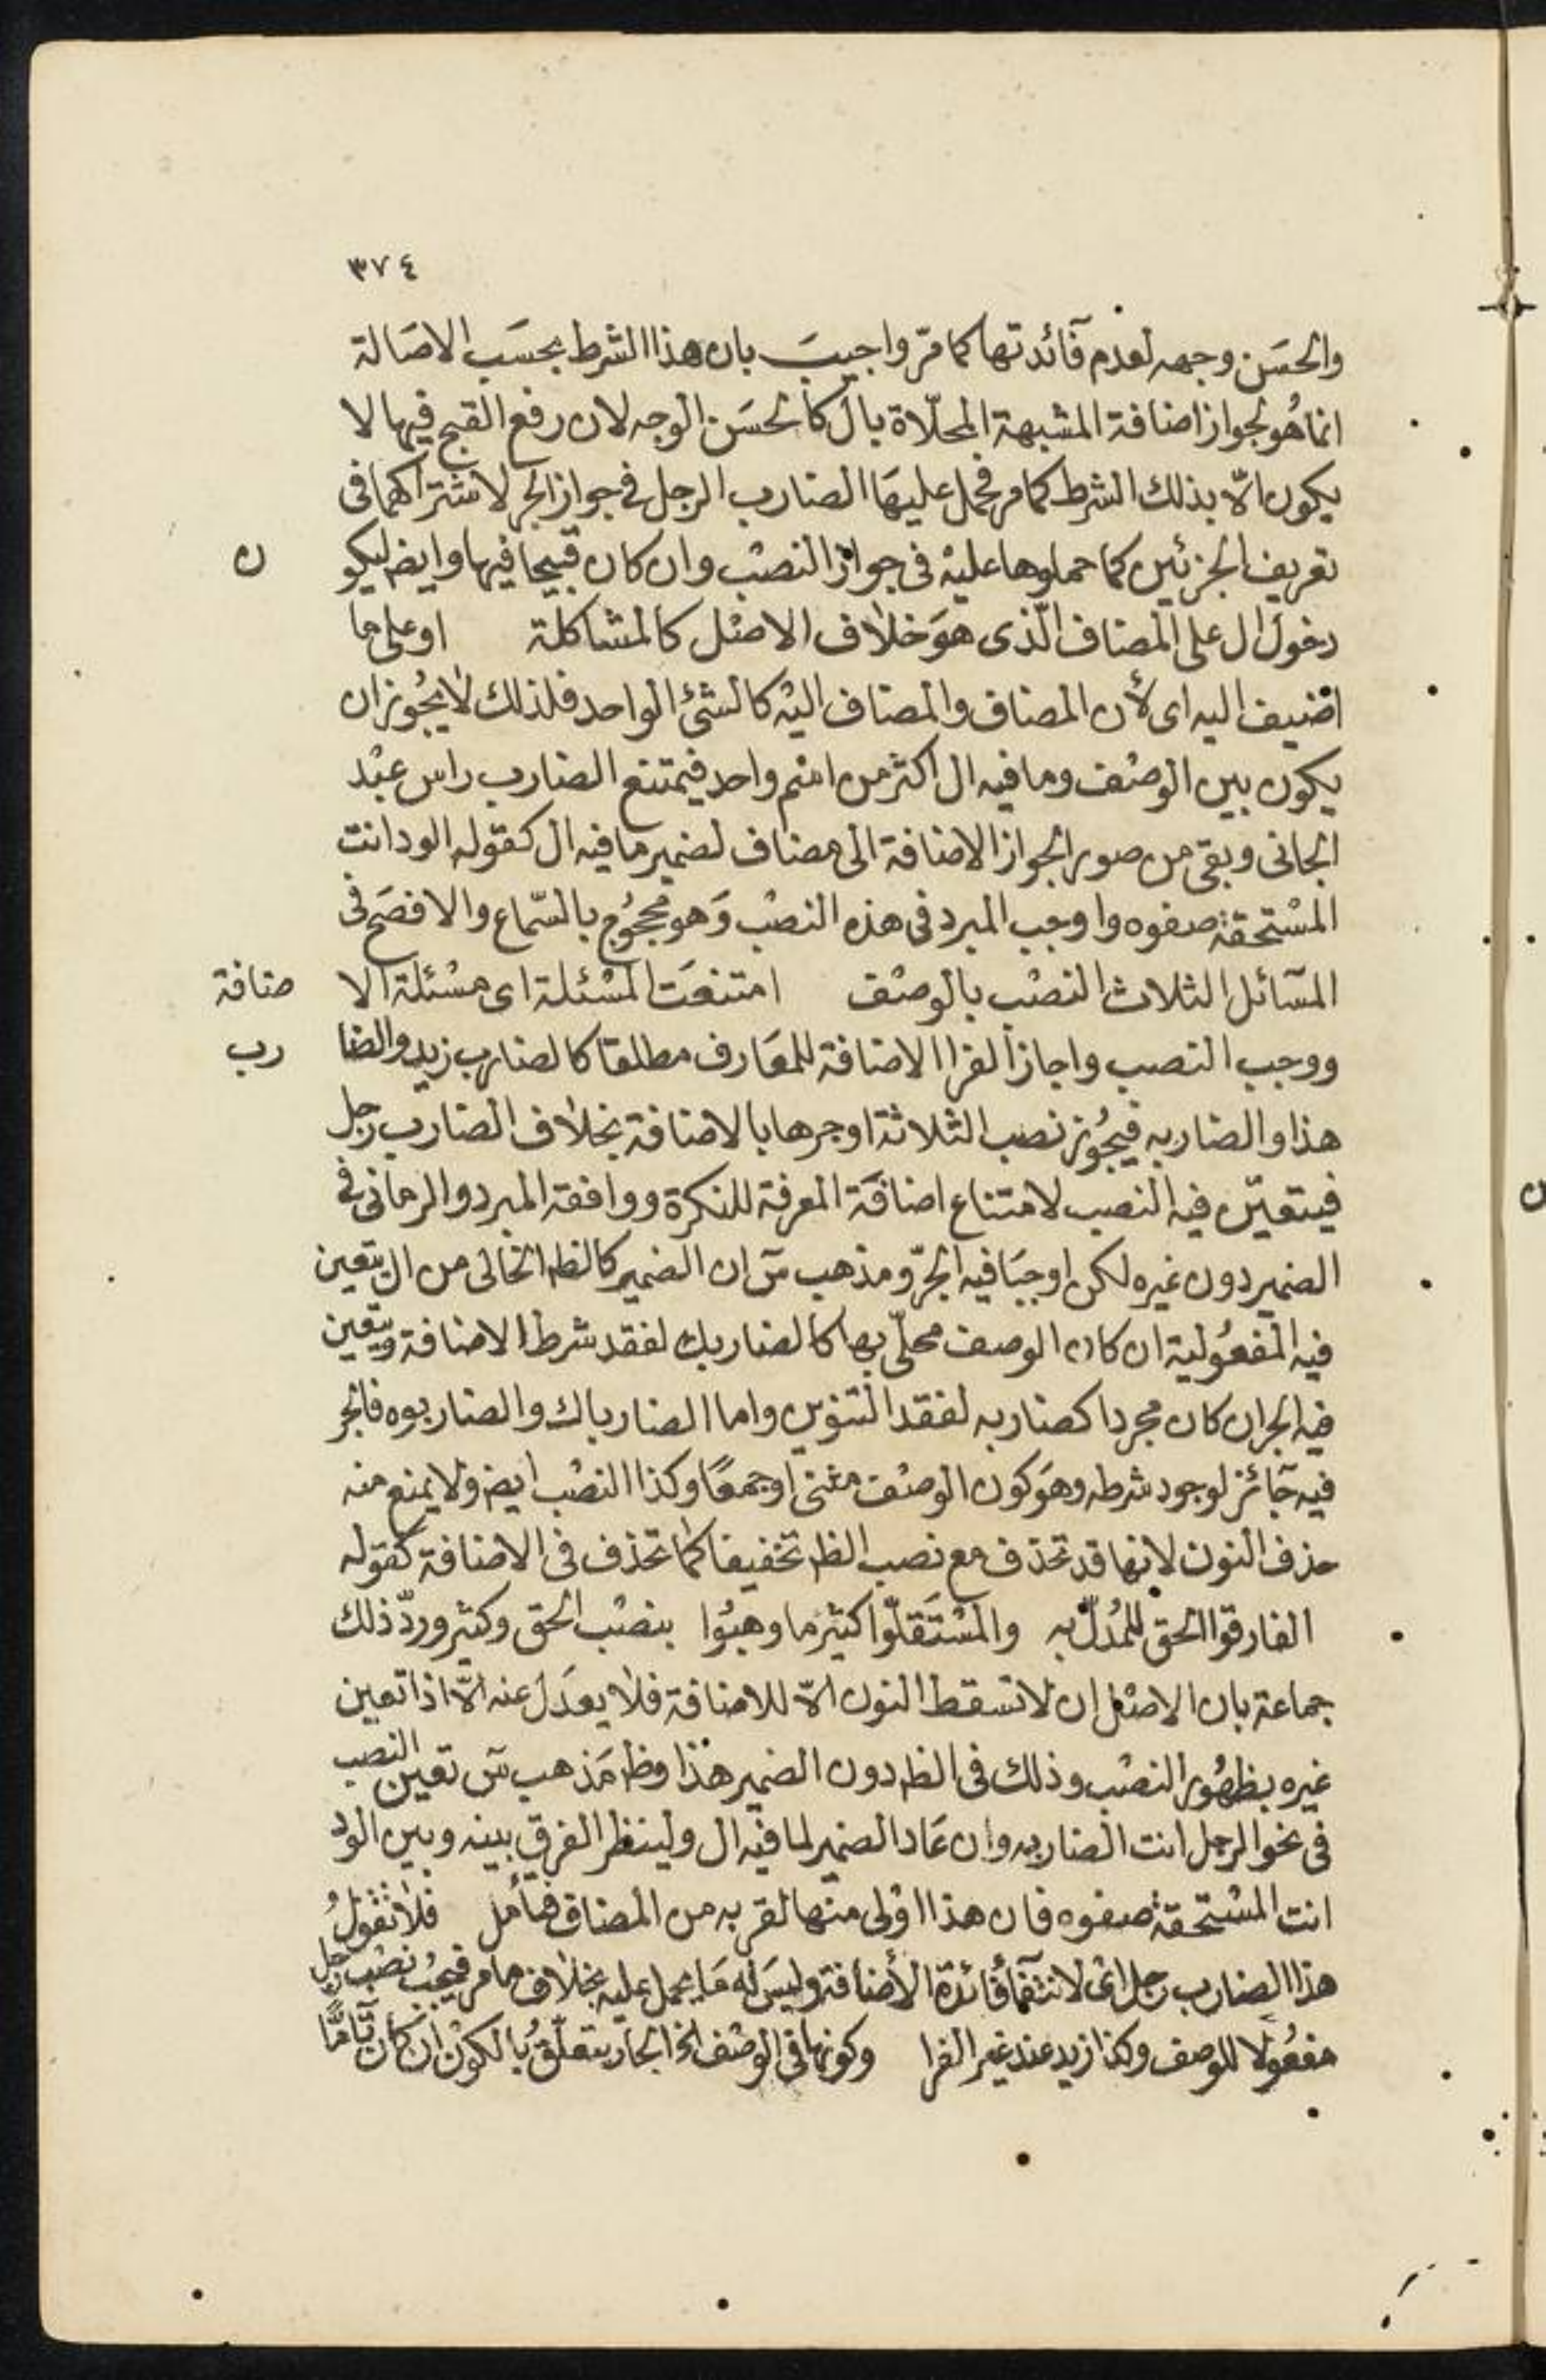 ٣٧٤
والحسَن وجهه لعدم فآئدتها كما مرّ واجيبَ بان هذا الشرط بحسَب الاصَالة
انما هُو لجواز اضافة المشبهة المحلّاة بال كالحسَن الوجه لان رفع القبح فيها لا
يكون الّا بذلك الشرط كما مر فحمل عليهَا الضارب الرجل في جواز الجر لاشتراكهما فى
تعريف الجزئين كما حملوها عليْه فى جواز النصْب وان كان قبيحا فيها وايض ليكون
دخول ال على المضاف الّذى هوَ خلاف الاصْل كالمشاكلة او على ما
اضيف اليه اى لأن المضاف والمضاف اليْه كالشئ الواحد فلذلك لا يجُوز ان
يكون بين الوصْف وما فيه ال اكثر من اسْم واحد فيمتنع الضارب راس عبْد
الجانى وبقى من صور الجواز الاضافة الى مضاف لضمير ما فيه ال كقوله الود انت
المسْتحقة صفوه واوجب المبرد فى هذه النصْب وَهو محجُوج بالسّماع والافصَح فى
المسآئل الثلاث النصْب بالوصْف امتنعَت المسْئلة اى مسْئلة الاضافة
ووجب النصب واجاز الفرا الاضافة للمعَارف مطلقا كالضارب زيد والضارب
هذا والضاربه فيجُوز نصب الثلاثة او جرها بالاضافة بخلاف الضارب رجل
فيتعيّن فيه النصب لامتناع اضافَة المعرفة للنكرة ووافقه المبرد والرمانى في
الضمير دون غيره لكن اوجبَا فيه الجرّ ومذهب سٓ ان الضمير كالظ الخالى من ال يتعين
فيه المفعُولية ان كان الوصف محلّى بها كالضاربك لفقد شرط الاضافة ويتعين
فيه الجر ان كان مجردا كضاربه لفقد التنوين واما الضارباك والضاربوه فالجر
فيه جَائز لوجود شرطه وهوَ كون الوصْف مثنى او جمعًا وكذا النصْب ايض ولا يمنع منه
حذف النون لانها قد تحذف مع نصب الظ تخفيفا كما تحذف فى الاضافة كقوله
الفارقوا الحق للمُدلّ به والمسْتَقلّوا كثيرَ ما وهبُوا بنصْب الحق وكثير وردّ ذلك
جماعة بان الاصْل ان لا تسقط النون الّا للاضافة فلا يعدَل عنه الّا اذا تعين
غيره بظهُور النصْب وذلك فى الظ دون الضمير هذا وظ مَذهب سٓ تعين النصب
فى نحو الرجل انت الضاربه وان عَاد الضمير لما فيْه ال ولينظر الفرق بينه وبين الود
انت المسْتحقة صفوه فان هذا اوْلى منها لقربه من المضاف فتأمل فلا تقولُ
هذا الضارب رجل اى لانتفآء فائدة الأضافة وليسَ له مَا يحمل عليه بخلاف ما مر فيجبُ نصْب رجل
مفعُولا للوصف وكذا زيد عند غير الفرا وكونها فى الوصْف الخ الجار يتعلّقُ بالكوْن ان كان تآمًّا